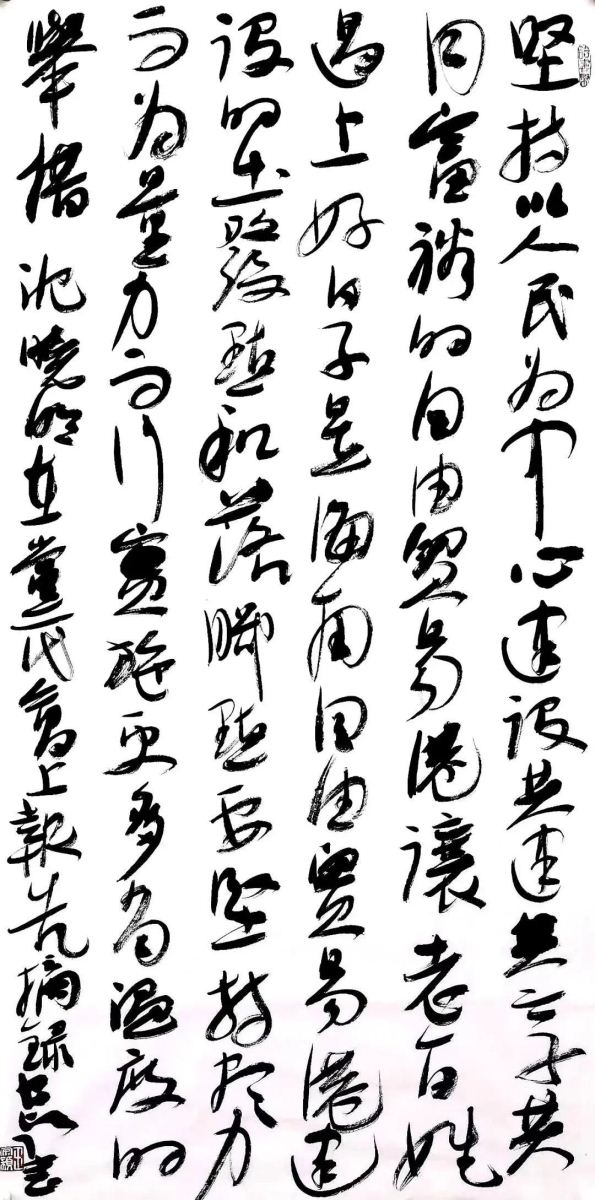 坚持以人民为中心建设共建共享共
同富裕的自由贸易港讓老百姓
过上好日子是海南自由贸易港建
设的出發點和落脚點要坚持尽力
而为量力而行实施更多有温度的
舉措 沈曉明在黨代會上報告摘録